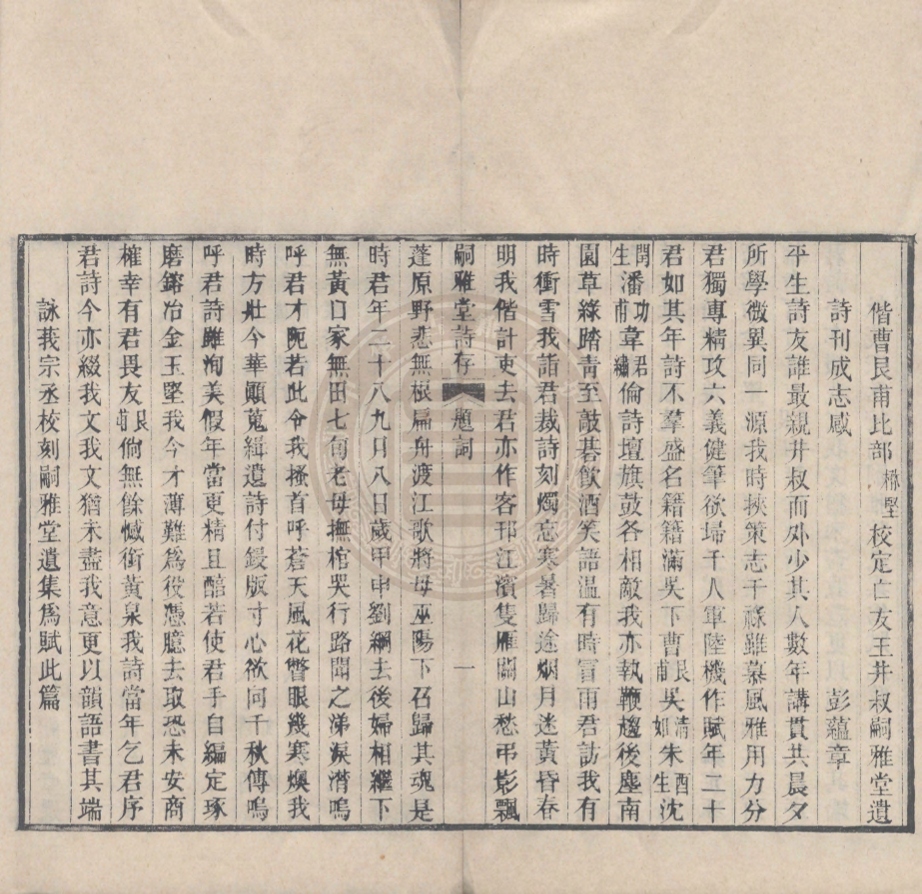 偕曹艮甫比部楙堅校定亡友王井叔嗣雅堂遺
詩刊成志感　彭蘊章
平生詩友誰最親井叔而外少其人數年講貫共晨夕
所學微異同一源我時挾策志干祿雖慕風雅用力分
君獨專精攻六義健筆欲埽千人軍陸機作賦年二十
君如其年詩不羣盛名籍籍滿吳下曹艮甫吳清如朱酉生沈
閏生潘功甫韋君繡倫詩壇旗鼓各相敵我亦執鞭趨後塵南
園草綠踏青至敲碁飲酒笑語溫有時冒雨君訪我有
時衝雪我詣君裁詩刻燭忘寒暑歸途烟月迷黃昏春
明我偕計吏去君亦作客邗江濱隻雁關山愁弔影飄
嗣雅堂詩存　題詞　一
蓬原野悲無根扁舟渡江歌將母巫陽下召歸其魂是
時君年二十八九月八日歲甲申劉綱去後婦相繼下
無黃口家無田七旬老母撫棺哭行路聞之涕淚潸嗚
呼君才阨若此令我搔首呼蒼天風花瞥眼幾寒燠我
時方壯今華顚蒐緝遺詩付鋟版寸心欲問千秋傳嗚
呼君詩雖洵美假年當更精且醇若使君手自編定琢
磨鎔冶金玉堅我今才薄難爲役憑臆去取恐未安商
榷幸有君畏友艮甫倘無餘憾銜黃泉我詩當年乞君序
君詩今亦綴我文我文猶未盡我意更以韻語書其端
詠莪宗丞校刻嗣雅堂遺集爲賦此篇